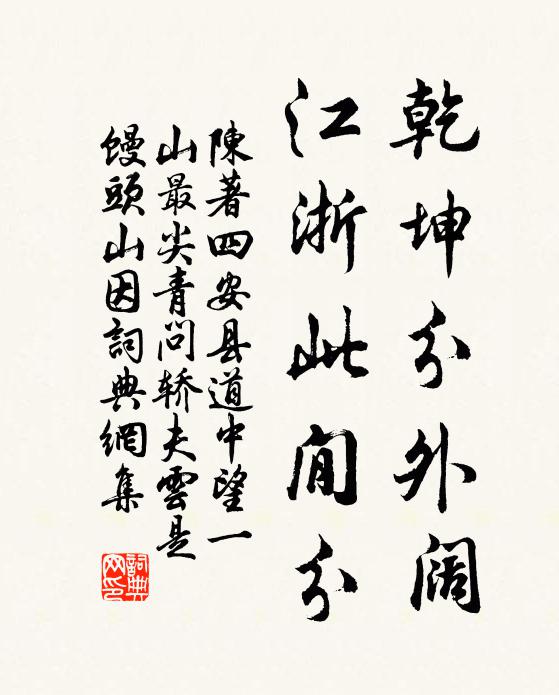 乾坤分外阔
江浙此間分
陳著四安县道中望一
山最尖青問轿夫雲是
馒頭山因詞典網集
詞典网印